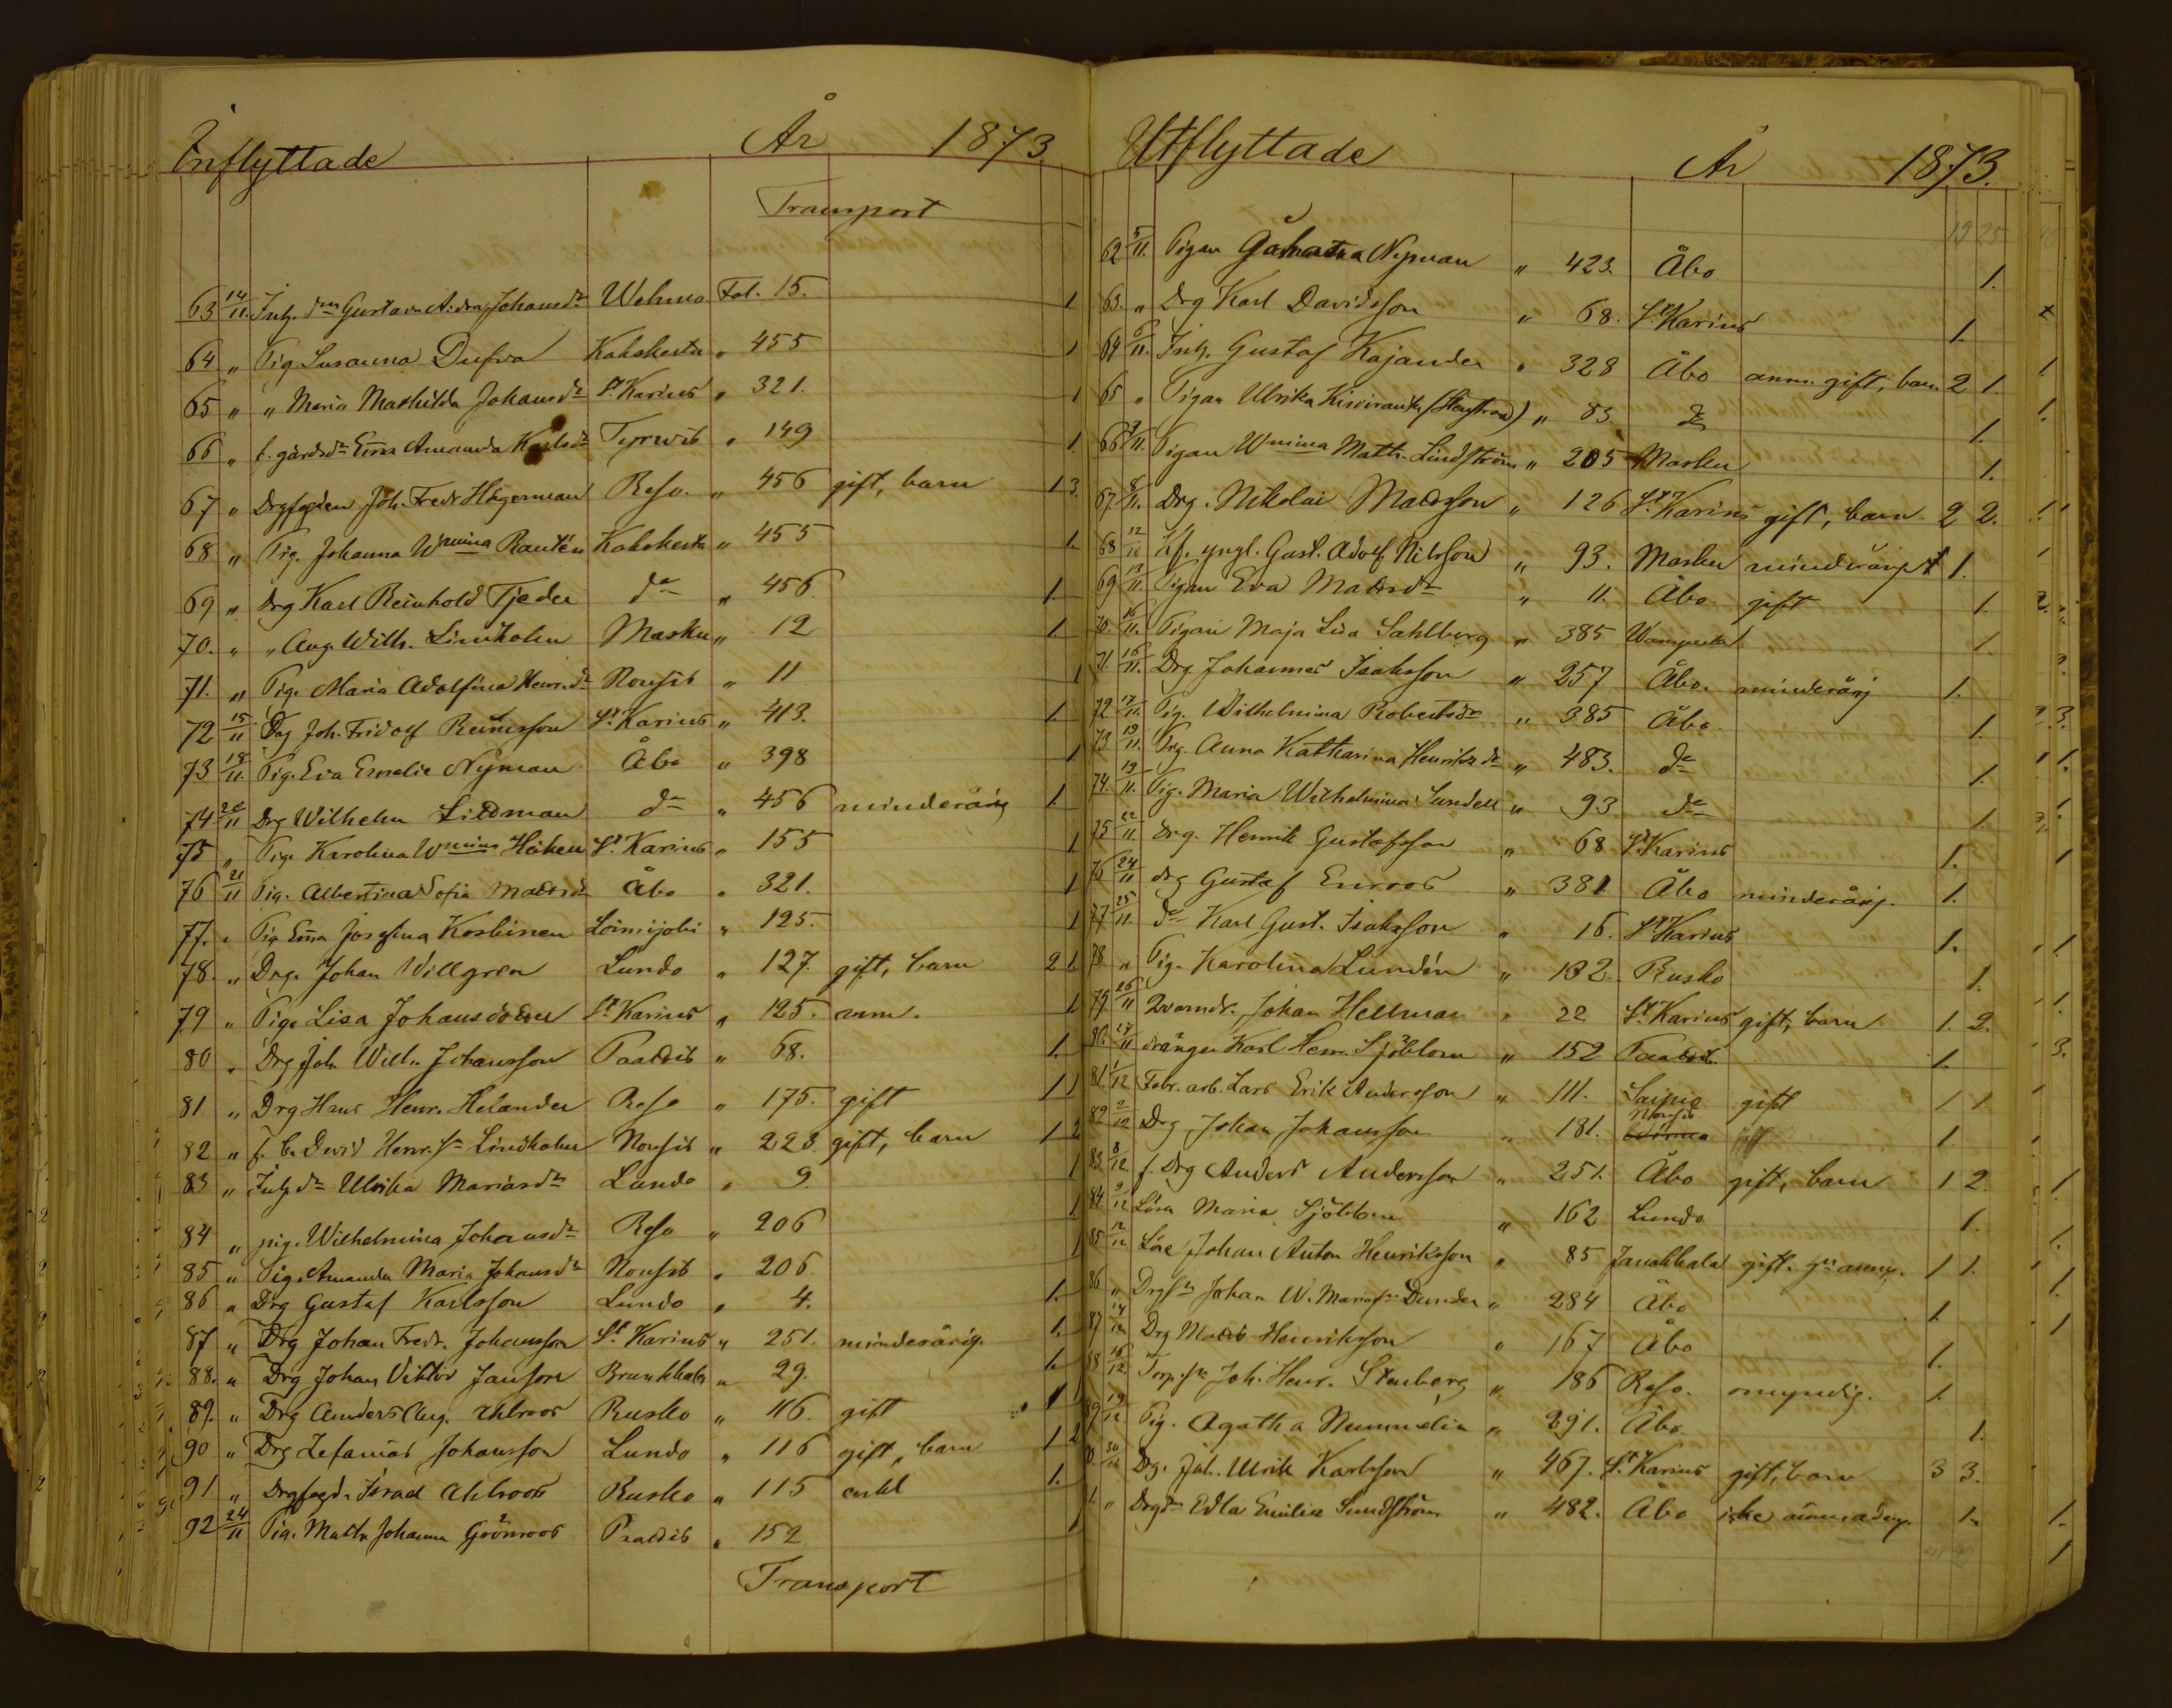 Inflyttade År 1873
Transport
63 14/11. Inh. dr Gustava A:dra Johansdr Wehmo Fol. 15. 1
64 „ Pig Susanna Dufva Kakskerta „ 455 1
65 „ „ Maria Mathilda Johansdr St Karins „ 321. 1
66 „ f. gårdsdr Ema Amanda Karlsdr Tyrwis „ 149 1.
67 „ Drgfogden Joh. Fredr Hägerman Reso. „ 456 gift, barn 1 3.
68 „ Pig. Johanna Wmina Rantén Kakskerta „ 455 1.
69 „ Drg Karl Reinhold Tjeder do „ 456. 1.
70. „ „ Aug. Wilh. Lindholm Masku „ 12 1.
71. „ Pig. Maria Adolfina Henr.dr Nousis „ 11 1
72 15/11 Drg Joh. Fridolf Reinisson St Karins „ 413. 1.
73 18/11. Pig. Eva Emelie Nyman Åbo „ 398 1
74 20/11 Drg Wilhelm Lidman do „ 456 minderårig 1.
75 „ Pig. Karolina Wmina Höken St Karins „ 155 1
76 21/11 Pig. Albertina Sofia Matsdr Åbo „ 321. 1
77. „ Pig Ema Josefina Koskinen Loimijoki „ 125. 1
78. „ Drg. Johan Willgren Lundo „ 127. gift, barn 2 1.
79 „ Pig. Lisa Johansdotter St Karins „ 125. anm. 1
80 „ Drg Joh. Wilh. Johansson Paattis „ 68. 1.
81 „ Drg Hans Henr. Helander Reso „ 175. gift 1 1
82 „ f. b. David Henr. sn Lindholm Nousis „ 223. gift, barn 1 2
83 „ Inh dr Ulrika Mariasdr Lundo „ 9. 1
84 „ pig. Wilhelmina Johansdr Reso „ 206 1
85 „ Pig. Amanda Maria Johansdr Nousis „ 206. 1
86 „ Drg Gustaf Karlsson Lundo „ 4. 1.
87 „ Drg Johan Fredr. Johansson St Karins „ 251. minderårig. 1.
88. „ Drg Johan Viktor Janson Brunkkala „ 29. 1.
89. „ Drg Anders Aug. Ahlroos Rusko „ 116. gift 1 1
90 „ Drg Zefanias Johansson Lundo „ 116 gift, barn 1 2
91 „ Drgfogd. Israel Ahlroos Rusko „ 115 enkl 1.
92 24/11 Pig. Math. Johanna Grönroos Paattis „ 152 1
Transport
Utflyttade År 1873.
19 25
62 5/11. Pigan Nyman „ 423. Åbo 1.
63. „ Drg Karl Davidsson „ 68. St Karins 1.
64 6/11. Inh. Gustaf Kajander „ 328 Åbo anm. gift, barn 2 1.
65 „ Pigan Ulrika „ 83. do 1.
66 7/11. Pigan Wmina Math. Lindström „ 205 Masku 1.
67. 8/11. Drg. Nikolai Matsson „ 126 St Karins gift, barn. 2 2.
68 12/11 Kf. yngl. Gust. Adolf Nilsson „ 93. Masku minderårig 1.
69 13/11. Pigan Eva Matsdr „ 11. Åbo. gift 1.
70. 16/11. Pigan Maja Lisa Sahlberg „ 385 Wampula 1.
71. 16/11. Drg. Johannes Isaksson „ 257 Åbo. minderårig 1.
72 17/11. Pig. Wilhelmina Robertsdr „ 385 Åbo. 1.
73 19/11. Pig. Anna Katharina Henriksdr „ 483. do 1.
74. 19/11. Pig. Maria Wilhelmina Sundell „ 93 do 1.
75 22/11. Drg. Henrik Gustafsson „ 68 St Karins 1.
76 24/11 drg Gustaf Enroos „ 381 Åbo minderårig. 1.
77 25/11. do Karl Gust. Isaksson „ 16. St Karins 1.
78 „ Pig. Karolina Lundén „ 132. Rusko 1.
79 26/11 Qvarndr. Johan Hellman „ 22 St Karins gift, barn 1. 2.
80. 27/11 drängen Karl Henr. Sjöblom „ 152 Paattis 1.
81. 1/12 Febr. arb. Lars Erik Andersson „ 111. Saipio gift 1 1.
82 2/12 Drg Johan Johansson „ 181. Nousis 1
83. 8/12. f. Drg Anders Andersson „ 251. Åbo gift, barn 1 2.
84 9/12 Lösa Maria Sjöblom „ 162 Lundo 1.
85 12/12 Löse Johan Anton Henriksson „ 85 Janakkala gift. 1 1.
86 „ Drgsn Johan W. Mariasn Dunder „ 284 Åbo 1.
87 14/12 Drg Matts Henriksson „ 167 Åbo 1.
88 16/12. Torp. sn Joh. Henr. Stenberg „ 186 Reso. omyndig. 1.
89 19/12 Pig. Agatha Nummelin „ 291. Åbo 1.
30/12 Drg. Joh. Ulrik Karlsson „ 467. St Karins gift, barn 3 3.
1. „ Drgdr Edla Emilia Sundström „ 482. Åbo icke 1.